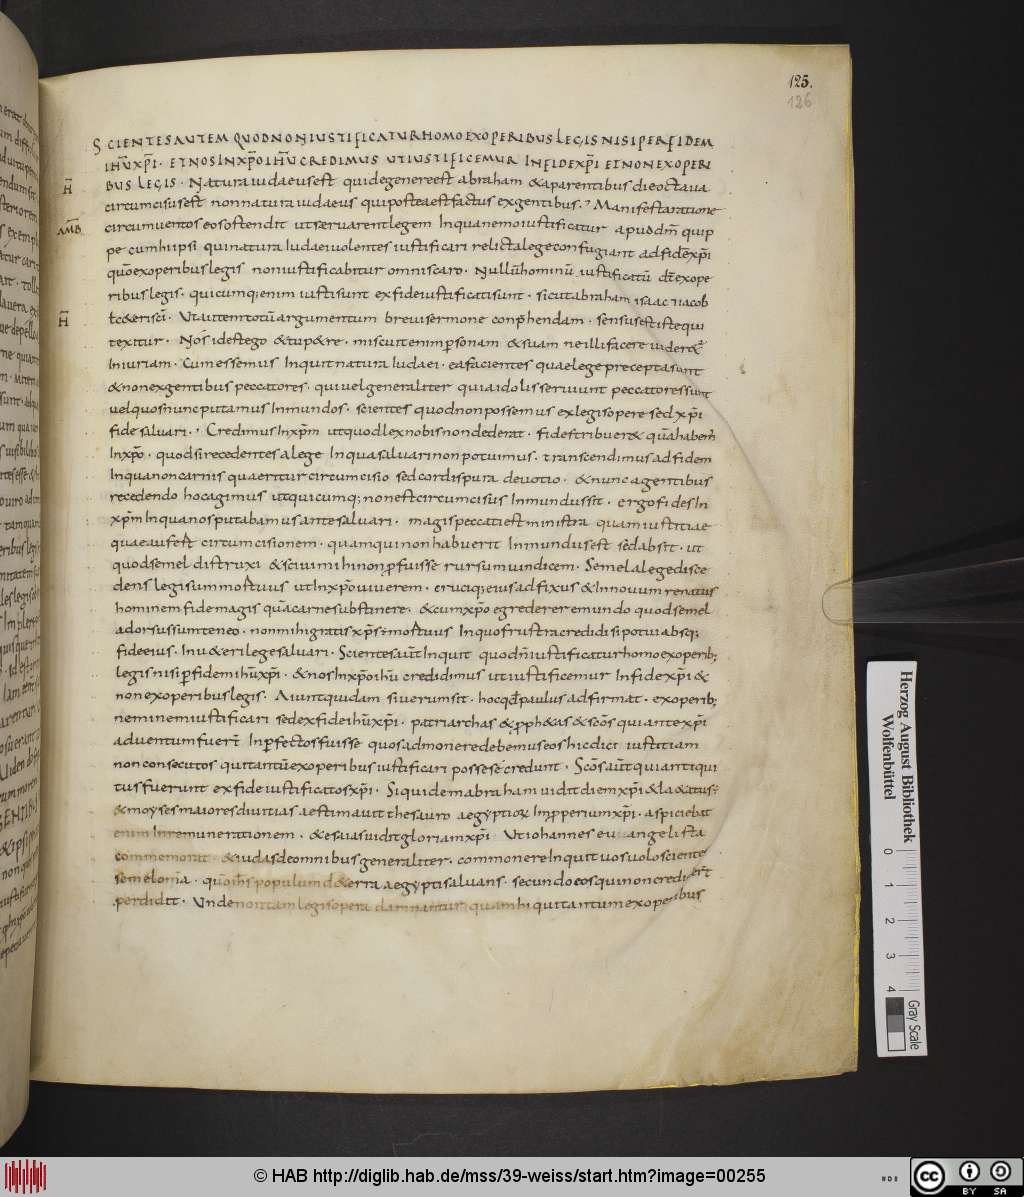 125.
126
SCIENTES AUTEM QUOD NON IUSTIFICATUR HOMO EX OPERIBUS LEGIS NISI PER FIDEM
IHŪ XP̄I · ET NOS IN XP̄O IHŪ CREDIMUS UT IUSTIFICEMUR IN FIDE XP̄I ET NON EX OPERI
H̄ BUS LEGIS · Natura iudaeus est qui degenere est abraham & a parentibus die octaua
circumcisus est non natura iudaeus qui postea est factus exgentibus. Manifesta ratione
AMB̄ circumuentos eos ostendit ut seruarent legem Inquanemo iustificatur apud dm̄ quip
pe cum hi ipsi qui natura Iudaei uolentes iustificari relicta lege confugiant ad fidē xp̄i
quō ex operibus legis non iustificabitur omnis caro · Nullū hominū iustificatū dt̄ ex ope
ribus legis · qui cumq; enim iusti sunt ex fide iustificati sunt · sicut abraham isaac iacob
H̄ &c&eri sc̄i · Ut autem totū argumentum breui sermone conp̄hendam · sensus est iste qui
texitur · Nos id est ego & tu p&re · miscuit enim p̱sonam & suam ne illi facere uider&ur
Iniuriam · Cum essemus Inquit natura Iudaei · ea facientes quae lege precepta sunt
& non exgentibus peccatores · qui uel generaliter quia idolis seruiunt peccatores sunt
uel quos nunc putamus Inmundos · scientes quod non possemus ex legis opere sed xp̄i
fide saluari · Credimus In xp̄m ut quod lex nobis non dederat · fides tribuer& quā habem̄
In xp̄o · quod si recedentes a lege Inqua saluari non potuimus · transcendimus ad fidem
Inqua non carnis quaeritur circumcisio sed cordis pura deuotio · & nunc a gentibus
recedendo hoc agimus ut quicumq; non est circumcisus Inmundus sit · ergo fides In
xp̄m Inqua nos putabamus ante saluari · magis peccati est ministra quam iustitiae
quae aufert circumcisionem · quam qui non habuerit Inmundus est sed absit · ut
quod semel distruxi & sciui mihi non p̱fuisse rursum uindicem · Semel a lege disce
dens legis um mortuus ut In xp̄o uiuerem · et cruciq; eius adfixus & In nouum renatus
hominem fide magis quā carne subsistere · & cum xp̄o egrederer e mundo quod semel
adorsus sum teneo · non mihi gratis xp̄s mortuus Inquo frustra credidi si potui absq;
fide eius · In u&eri lege saluari · Scientes aūt Inquit quod n̄ iustificatur homo ex operib;
legis nisi p̱ fidem ihū xp̄i · & nos In xp̄o ihū credidimus ut iustificemur In fide xp̄i &
non ex operibus legis · Aiunt quidam si uerum sit · hoc qd̄ paulus adfirmat · ex operib;
neminem iustificari sed ex fide ihū xp̄i · patriarchas & p̱ph&as & sc̄os qui ante xp̄i
aduentum fuer̄t Inp̱fectos fuisse quos admonere debemus eos hic dici iustitiam
non consecutos qui tantū ex operibus iustificari posse se credunt · Sc̄os aūt qui antiqui
tus fuerunt ex fide iustificatos xp̄i · Siquidem abraham uidit diem xp̄i & la&atus ÷
& moyses maiores diuitias aestimauit thesauro aegyptioꝝ Inp̱perium xp̄i · aspiciebat
enim Inremunerationem · & esaias uidit gloriam xp̄i Ut iohannes euangelista
commemorat · & iudas de omnibus generaliter · commonere Inquit uos uolo scientes
semel omnia · qm̄ ih̄s populum de terra aegypti saluans · secundo eos qui non crediderūt
perdidit · Unde non tam legis opera damnantur quam hi qui tantum ex operibus
Herzog August Bibliothek
Wolfenbüttel
0 1 2 3 4
Gray Scale
© HAB http://diglib.hab.de/mss/39-weiss/start.htm?image=00255
cc BY SA